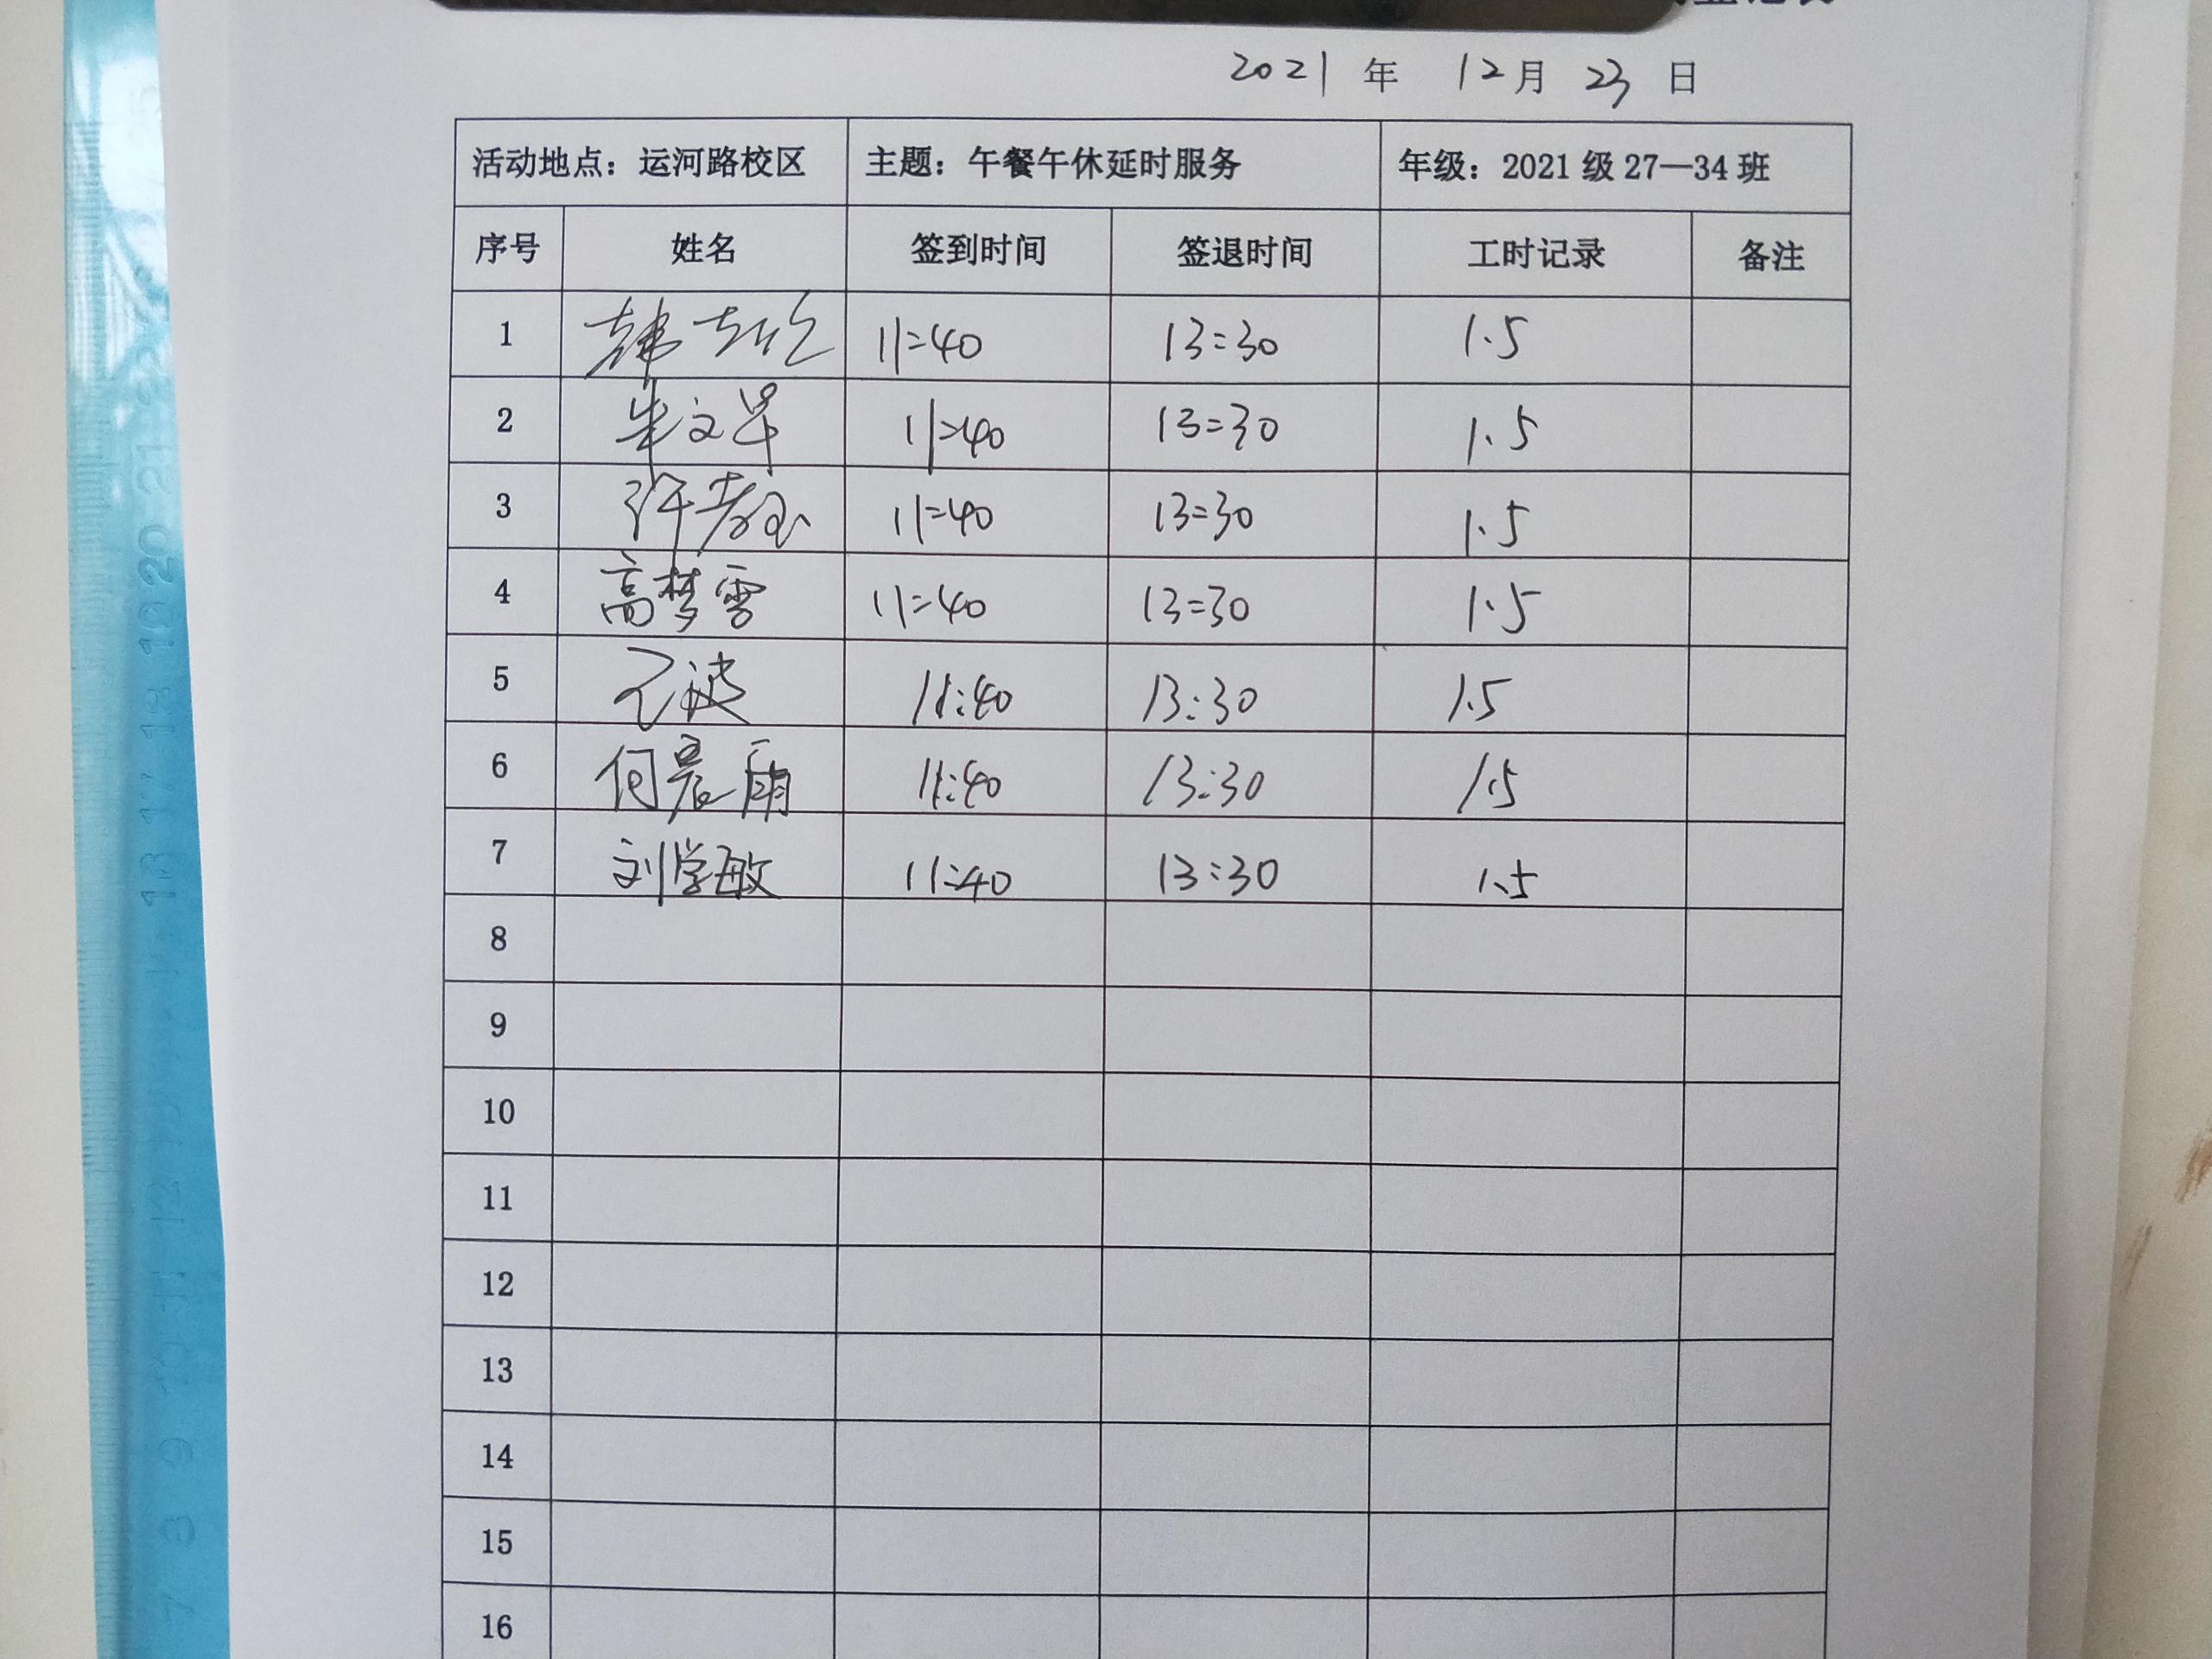 2021 年 12 月 23 日
活动地点：运河路校区 主题：午餐午休延时服务 年级：2021 级 27—34 班
序号 姓名 签到时间 签退时间 工时记录 备注
1 韩 11:40 13:30 1.5
2 朱文 11:40 13:30 1.5
3 许 11:40 13:30 1.5
4 高梦雪 11:40 13:30 1.5
5 波 11:40 13:30 1.5
6 何晨雨 11:40 13:30 1.5
7 刘学敏 11:40 13:30 1.5
8
9
10
11
12
13
14
15
16